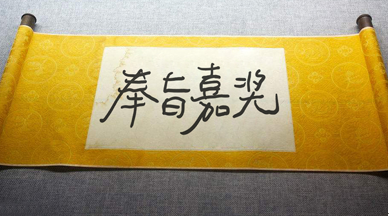 奉旨嘉奖